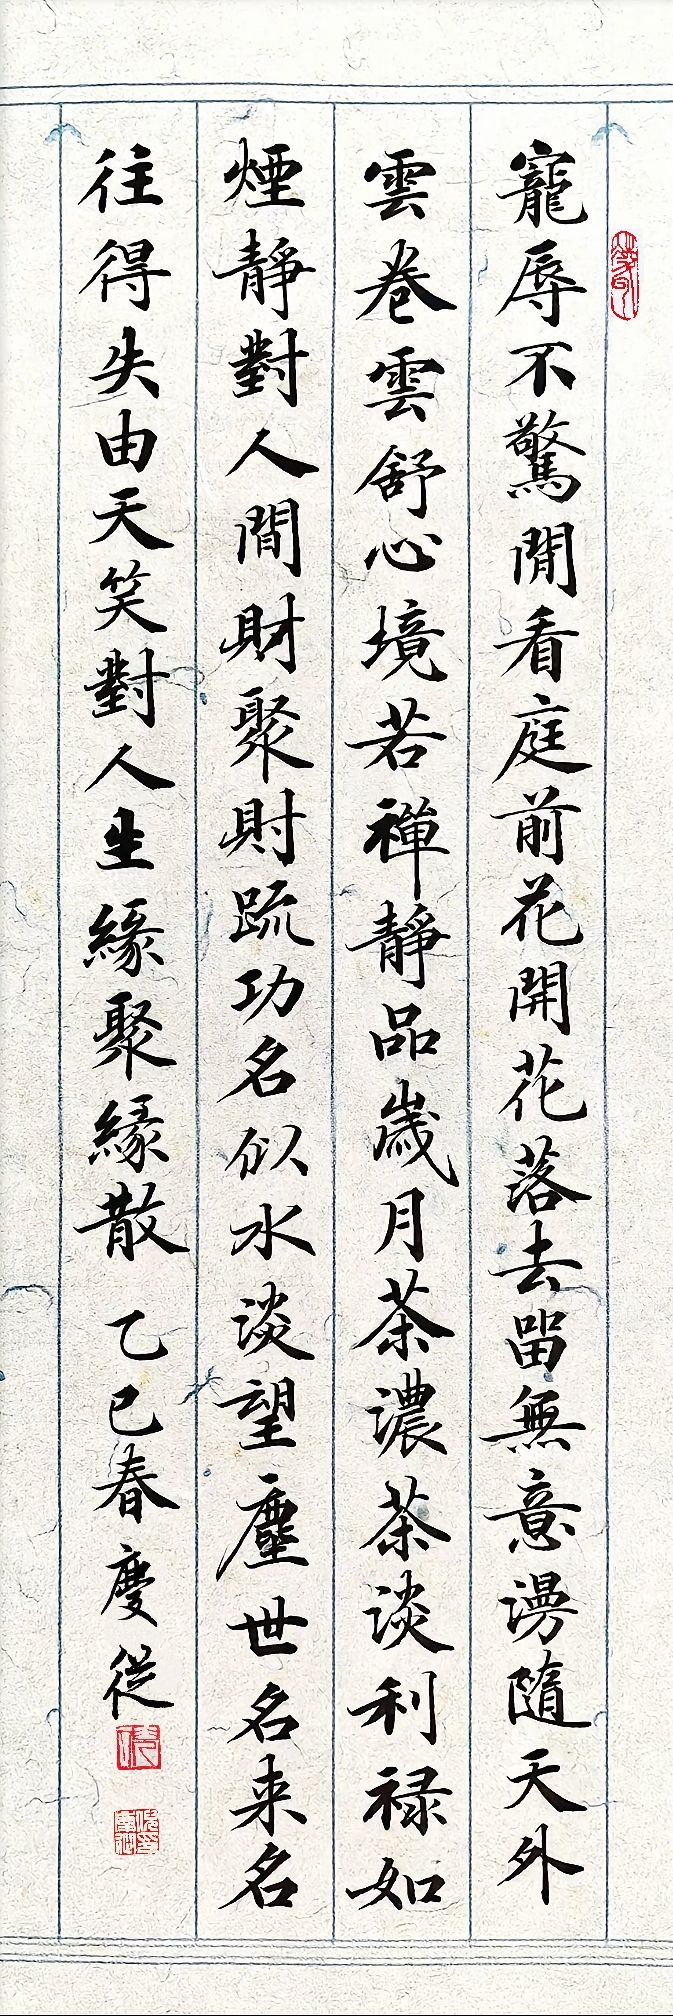 寵辱不驚閒看庭前花開花落去留無意漫隨天外
雲卷雲舒心境若禪靜品歲月茶濃茶談利祿如
煙靜對人間財聚財疏功名似水淡望塵世名来名
往得失由天笑對人生緣聚緣散 乙巳春慶從